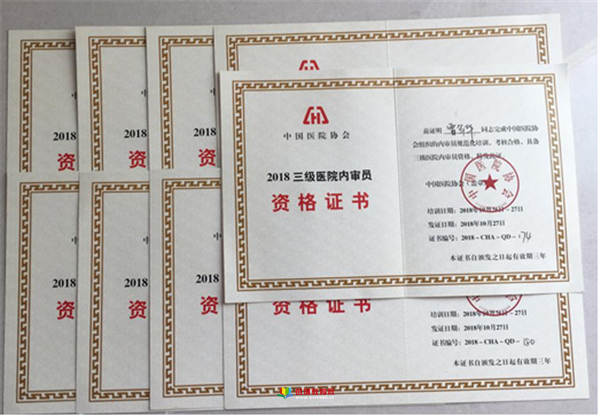 中
2018
资
中
2018
资
中
2018
资
中国医院协会
2018 三级医院内审员
资格证书
兹证明
同志完成中国医院协
会组织的内审员规范化培训,考核合格,具备
三级医院内审员资格,特发此证。
中国医院协会(盖章)
中国医院协会
培训日期:2018年10月26日-27日
发证日期:2018年10月27日
证书编号:2018-CHA-QD-174
本证书自颁发之日起有效期三年
中
2018
资
中
2018
资
中
2018
资
资格证书
培训日期:2018年10月26日-27日
发证日期:2018年10月27日
证书编号:2018-CHA-QD-
本证书自颁发之日起有效期三年